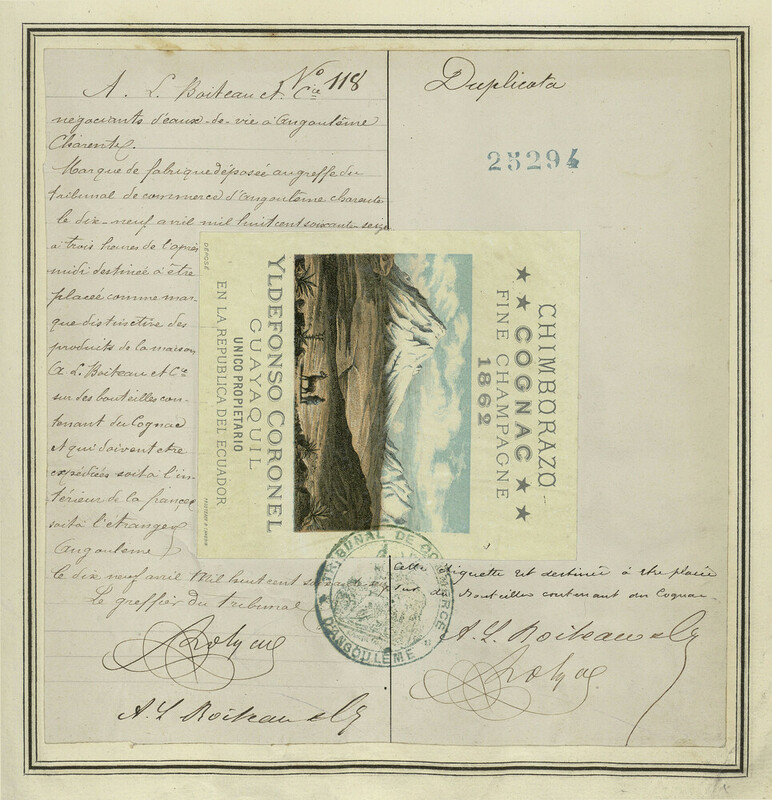 Nº 118
A. L. Boiteau et Cie
négociants d'eaux-de-vie à Angoulême
Charente.
Marque de fabrique déposée au greffe du
tribunal de commerce d'Angoulême Charente
le dix-neuf avril mil huit cent soixante seize
à trois heures de l'après
midi destinée à être
placée comme mar-
que distinctive des
produits de la maison
A. L. Boiteau et Cie
sur des bouteilles con-
tenant du Cognac
et qui doivent être
expédiées soit à l'in-
térieur de la france,
soit à l'étranger
Angoulême
le dix neuf avril Mil huit cent
Le greffier du tribunal
A. L Boiteau & Cie
Duplicata
25294
CHIMBORAZO
★ ★ COGNAC ★ ★
FINE CHAMPAGNE
1862
YLDEFONSO CORONEL
GUAYAQUIL
UNICO PROPIETARIO
EN LA REPUBLICA DEL ECUADOR
DEPOSÉ
TRIBUNAL DE COMMERCE
D'ANGOULÊME
Cette étiquette est destinée à être placée
sur des Bouteilles contenant du Cognac
A. L. Boiteau & Cie